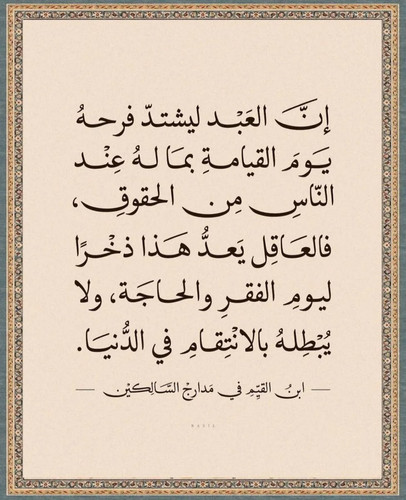 إنَّ العَبْد ليشتدّ فرحهُ
يَومَ القيامةِ بمَا لهُ عِنْد
النّاسِ مِن الحقوقِ،
فالعَاقِل يَعدُّ هَذا ذخْرًا
ليومِ الفقرِ والحاجَة، ولا
يُبْطِلهُ بالانْتِقامِ في الدُّنيَا.
ابنُ القيّمِ في مَدارج السَّالِكيْن